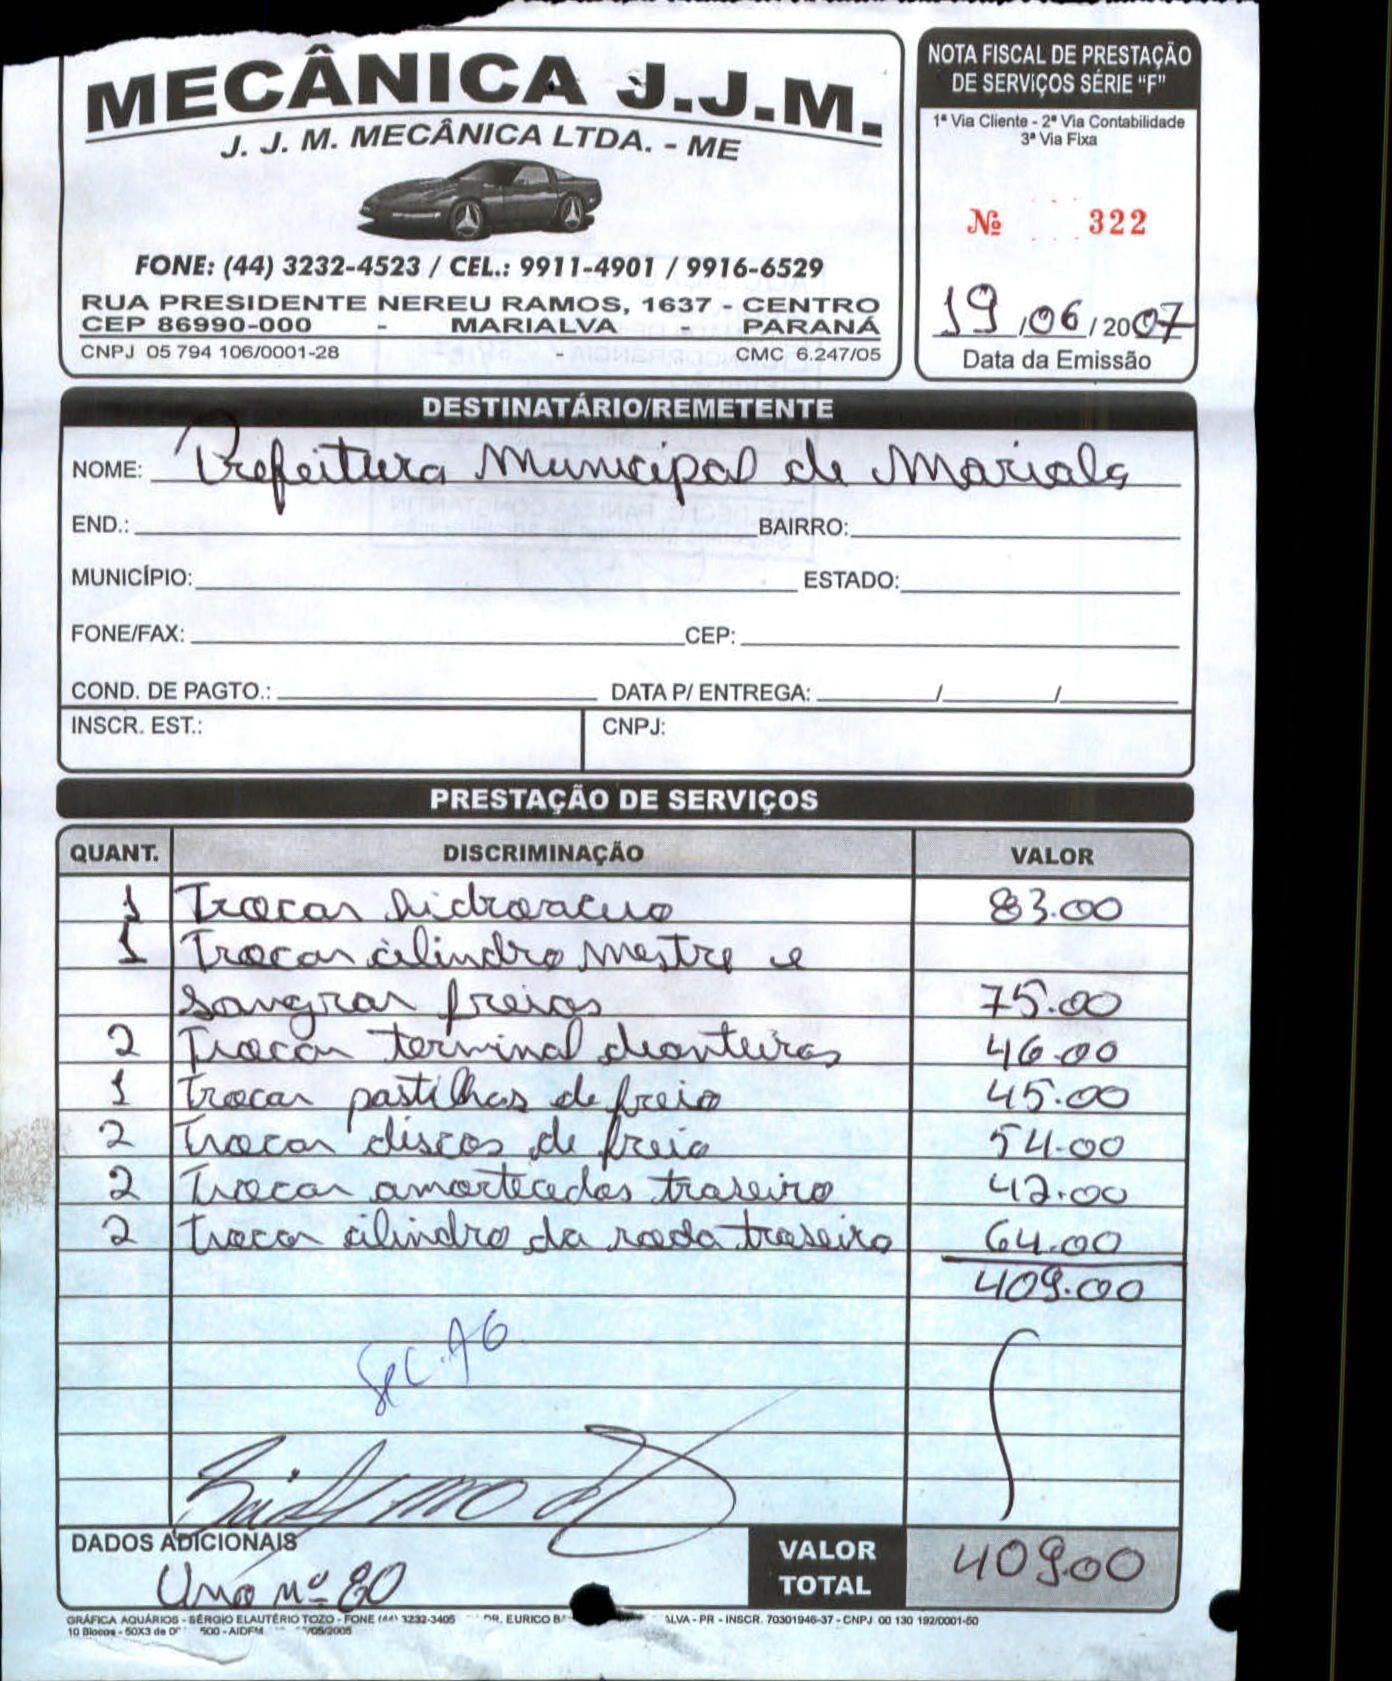 MECÂNICA J.J.M.
J. J. M. MECÂNICA LTDA. - ME
FONE: (44) 3232-4523 / CEL.: 9911-4901 / 9916-6529
RUA PRESIDENTE NEREU RAMOS, 1637 - CENTRO
CEP 86990-000 - MARIALVA - PARANÁ
CNPJ 05 794 106/0001-28 - CMC 6.247/05
NOTA FISCAL DE PRESTAÇÃO
DE SERVIÇOS SÉRIE "F"
1ª Via Cliente - 2ª Via Contabilidade
3ª Via Fixa
Nº 322
19/06/2007
Data da Emissão
DESTINATÁRIO/REMETENTE
NOME: Prefeitura Municipal de Mariala
END.: BAIRRO:
MUNICÍPIO: ESTADO:
FONE/FAX: CEP:
COND. DE PAGTO.: DATA P/ ENTREGA: / /
INSCR. EST.: CNPJ:
PRESTAÇÃO DE SERVIÇOS
QUANT. DISCRIMINAÇÃO VALOR
1 Trocar hidroacuo 83.00
1 Trocar cilindro mestre e
sangrar freios 75.00
2 Trocar terminal dianteiros 46.00
1 Trocar pastilhas de freio 45.00
2 Trocar discos de freio 54.00
2 Trocar amortecedos traseiro 42.00
2 Trocar cilindro da roda traseiro 64.00
409.00
Sec. AG.
DADOS ADICIONAIS
Uno nº 80
VALOR
TOTAL
409.00
GRÁFICA AQUÁRIOS - SÉRGIO ELAUTÉRIO TOZO - FONE (44) 3232-3405 DR. EURICO ALVA - PR - INSCR. 70301946-37 - CNPJ 00 130 192/0001-50
10 Blocos - 50X3 de 500 - AIDFM /05/2005